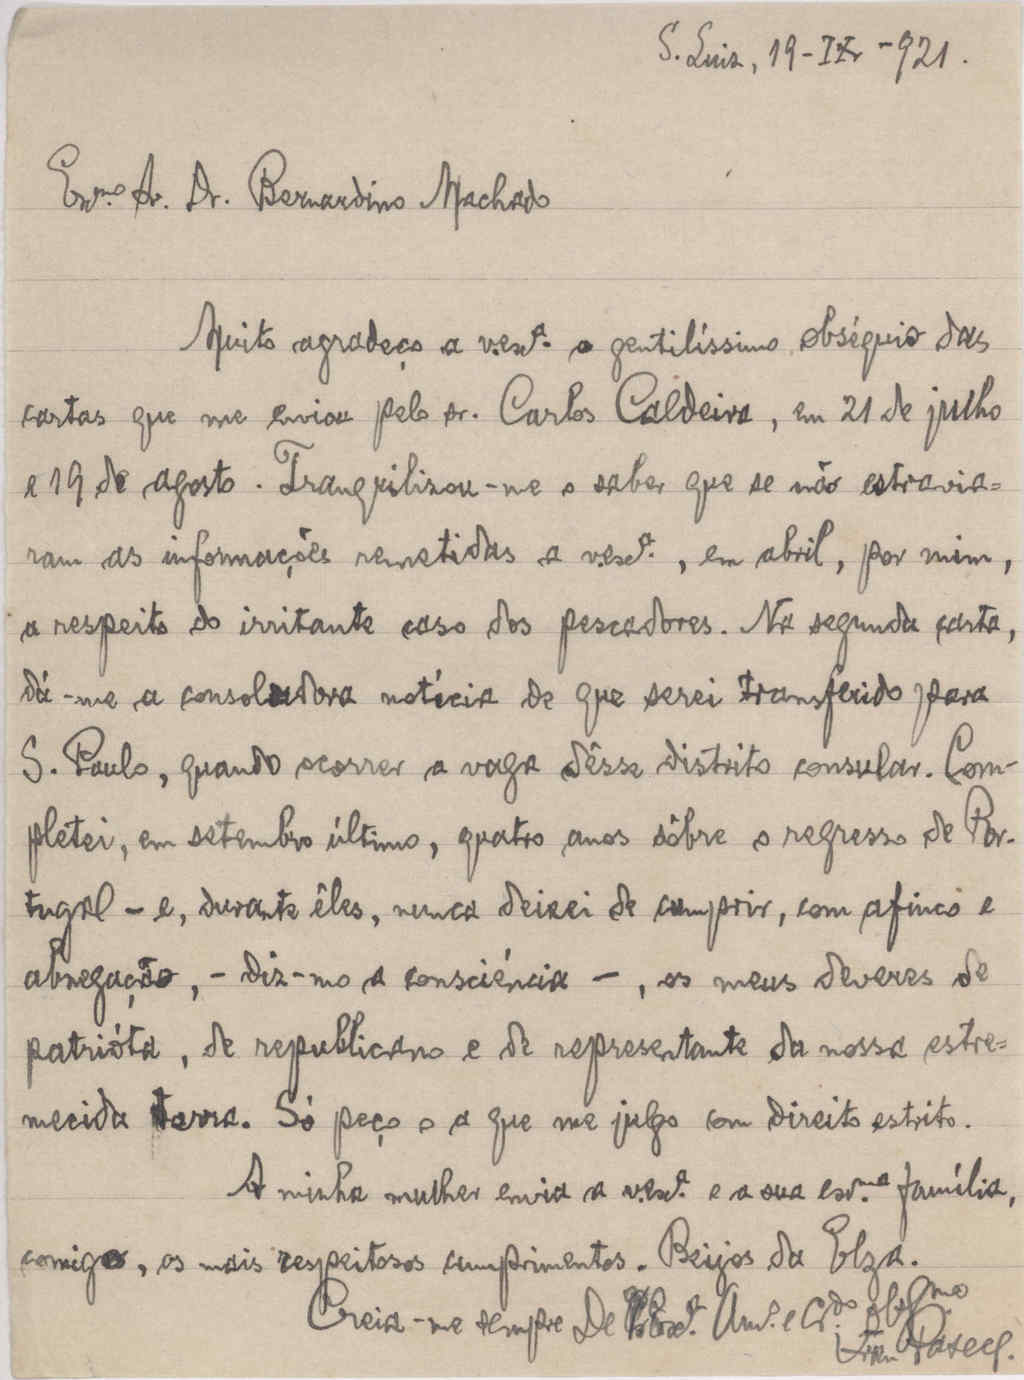 S. Luiz, 19-IX-921.
Exmo. Sr. Dr. Bernardino Machado
Muito agradeço a v.exª. o gentilíssimo obséquio das
cartas que me enviou pelo sr. Carlos Caldeira, em 21 de julho
e 19 de agosto. Tranquilizou-me o saber que se não extravia=
ram as informações remetidas a v.exª., em abril, por mim,
a respeito do irritante caso dos pescadores. Na segunda carta,
dá-me a consoladora notícia de que serei transferido para
S. Paulo, quando ocorrer a vaga dêsse distrito consular. Com-
pletei, em setembro último, quatro anos sôbre o regresso de Por-
tugal - e, durante êles, nunca deixei de cumprir, com afinco e
abnegação, - diz-mo a consciência -, os meus deveres de
patrióta, de republicano e de representante da nossa estre=
mecida terra. Só peço o a que me julgo com direito estrito.
A minha mulher envia a v.exª. e a sua exmª família,
comigo, os mais respeitosos cumprimentos. Beijos da Elza.
Creia-me sempre De V. Exª. Amº. e Crdo. obgmo
Fran Paxeco.